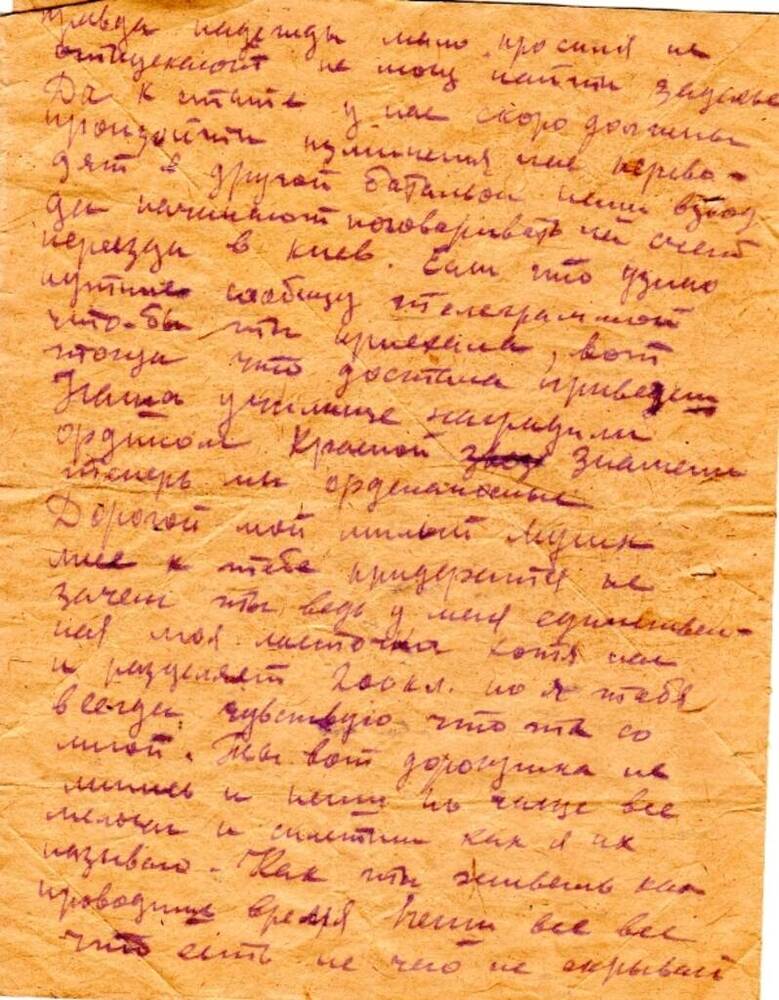 правда надежды мало, просился не
отпускают не могу найти
Да к стате у нас скоро должны
произойти изминения нас перево-
дят в другой батальон наши взвод
да начинают поговаривать на счет
переезда в киев. Если что узнаю
путнее сообщу телеграммой
что-бы ты приехала, вот
тогда что достала привезеш
Наша училище наградили
орденом Красной знамени
теперь мы орденаносные
Дорогой мой милый
мне к тебе придератся не
зачем ты ведь у меня единствен-
ная моя ласточка хотя нас
и разделяет 200кл. но я тебя
всегда чувствую что ты со
мной. Ты вот дорогушка не
ленись и пеши по чаще все
мелочи и сплетни как я их
называю. Как ты живешь как
проводиш время пеши все все
что есть не чего не скрывай